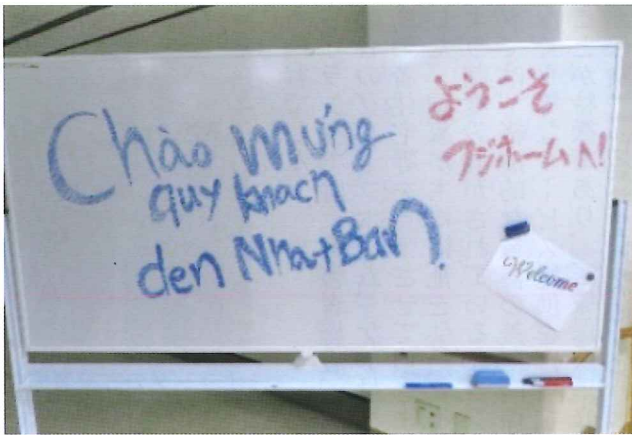 Chào mừng
quy khach
den Nhat Ban.
ようこそ
フジホームへ!
Welcome